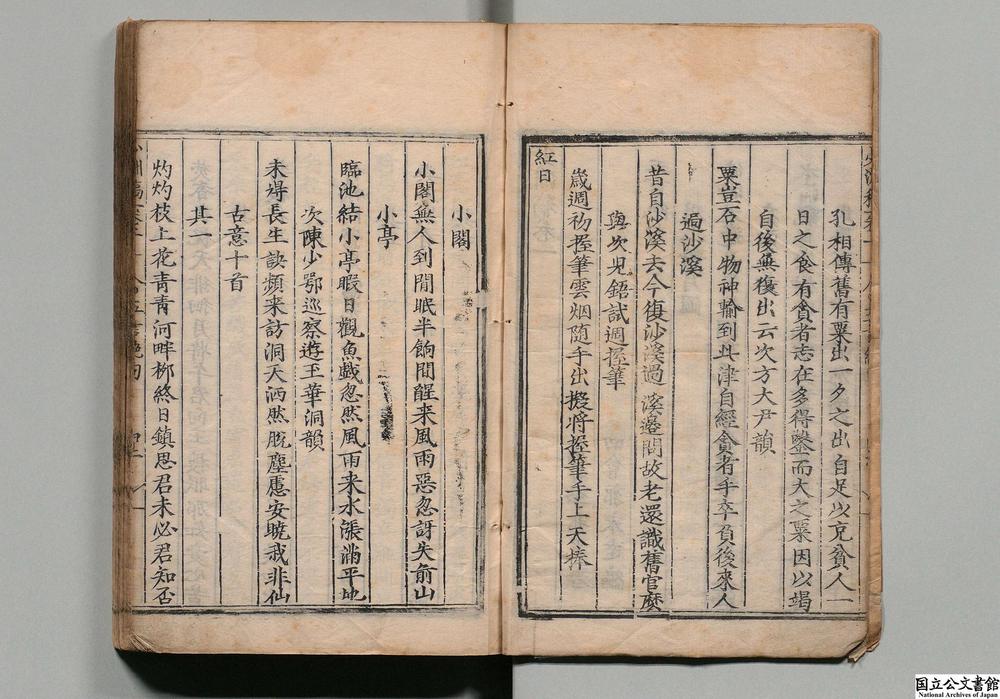 孔相傳舊有粟出一夕之出自足以充貧人一
日之食有貪者志在多得鑿而大之粟因以竭
自後無復出云次方大尹韻
粟豆石中物神輸到此津自經貪者手卒負後來人
過沙溪
昔自沙溪去今復沙溪過溪邊問故老還識舊官麼
與次兒鋙試週握筆
歲週初握筆雲烟隨手出擬將握筆手上天捧
紅日
小閣
小閣無人到閒眠半餉間醒来風雨惡忽訝失前山
小亭
臨池結小亭暇日觀魚戲忽然風雨来水漲滿平地
次陳少鄂巡察遊玉華洞韻
未得長生訣頻来訪洞天洒然脫塵慮安曉我非仙
古意十首
其一
灼灼枝上花靑靑河畔柳終日鎮思君未必君知否
国立公文書館
National Archives of Japan